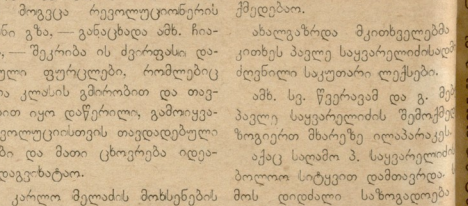 მოგვცა რევოლუციონერის
ნი გზა, — განაცხადა ამხ. ჩია-
, — შეკრიბა ის ძვირფასი და-
ული ფურცლები, რომლებიც
ია კლასის გმირობით და თავ-
ით იყო დაწერილი, გამოიყვა-
ვოლუციისთვის თავდადებული
ბი და მათი ცხოვრება იდეა-
დაგვიხატაო.
კარლო მელაძის მოხსენების
ქმედებაო.
ახალგაზრდა მკითხველებმა
კითხეს პავლე საყვარელიძისადმი
ძღვნილი საკუთარი ლექსები.
ამხ. სვ. წვერავამ და გ. მებ
პავლე საყვარელიძის შემოქმედ
ზოგიერთ მხარეზე ილაპარაკეს.
აქაც საღამო პ. საყვარელიძის
ბოლოო სიტყვით დამთავრდა.
მოს დიდძალი საზოგადოება